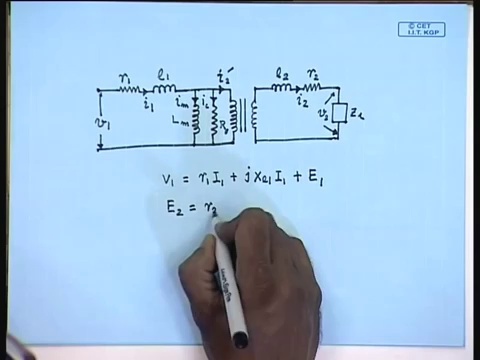 © CET
I.I.T. KGP
r₁ l₁ i₂′ l₂ r₂
i₁ iₘ i꜀ i₂
v₁ Lₘ v₂ Z_L
V₁ = r₁ I₁ + j X_l₁ I₁ + E₁
E₂ = r₂